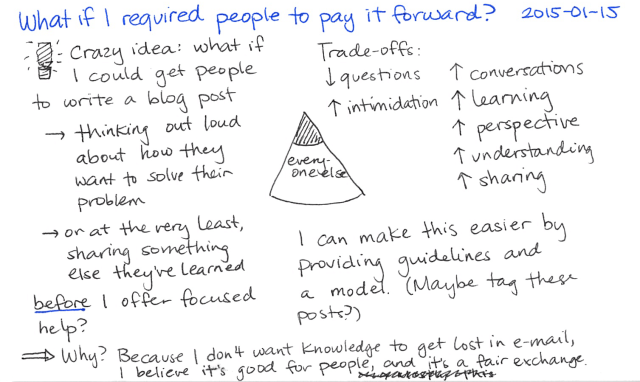 What if I required people to pay it forward? 2015-01-15
Crazy idea: what if
I could get people
to write a blog post
→ thinking out loud
about how they
want to solve their
problem
→ or at the very least,
sharing something
else they've learned
before I offer focused
help?
Trade-offs:
↓ questions
↑ intimidation
↑ conversations
↑ learning
↑ perspective
↑ understanding
↑ sharing
every-
one else
I can make this easier by
providing guidelines and
a model. (Maybe tag these
posts?)
⇒ Why? Because I don't want knowledge to get lost in e-mail,
I believe it's good for people, and it's a fair exchange.